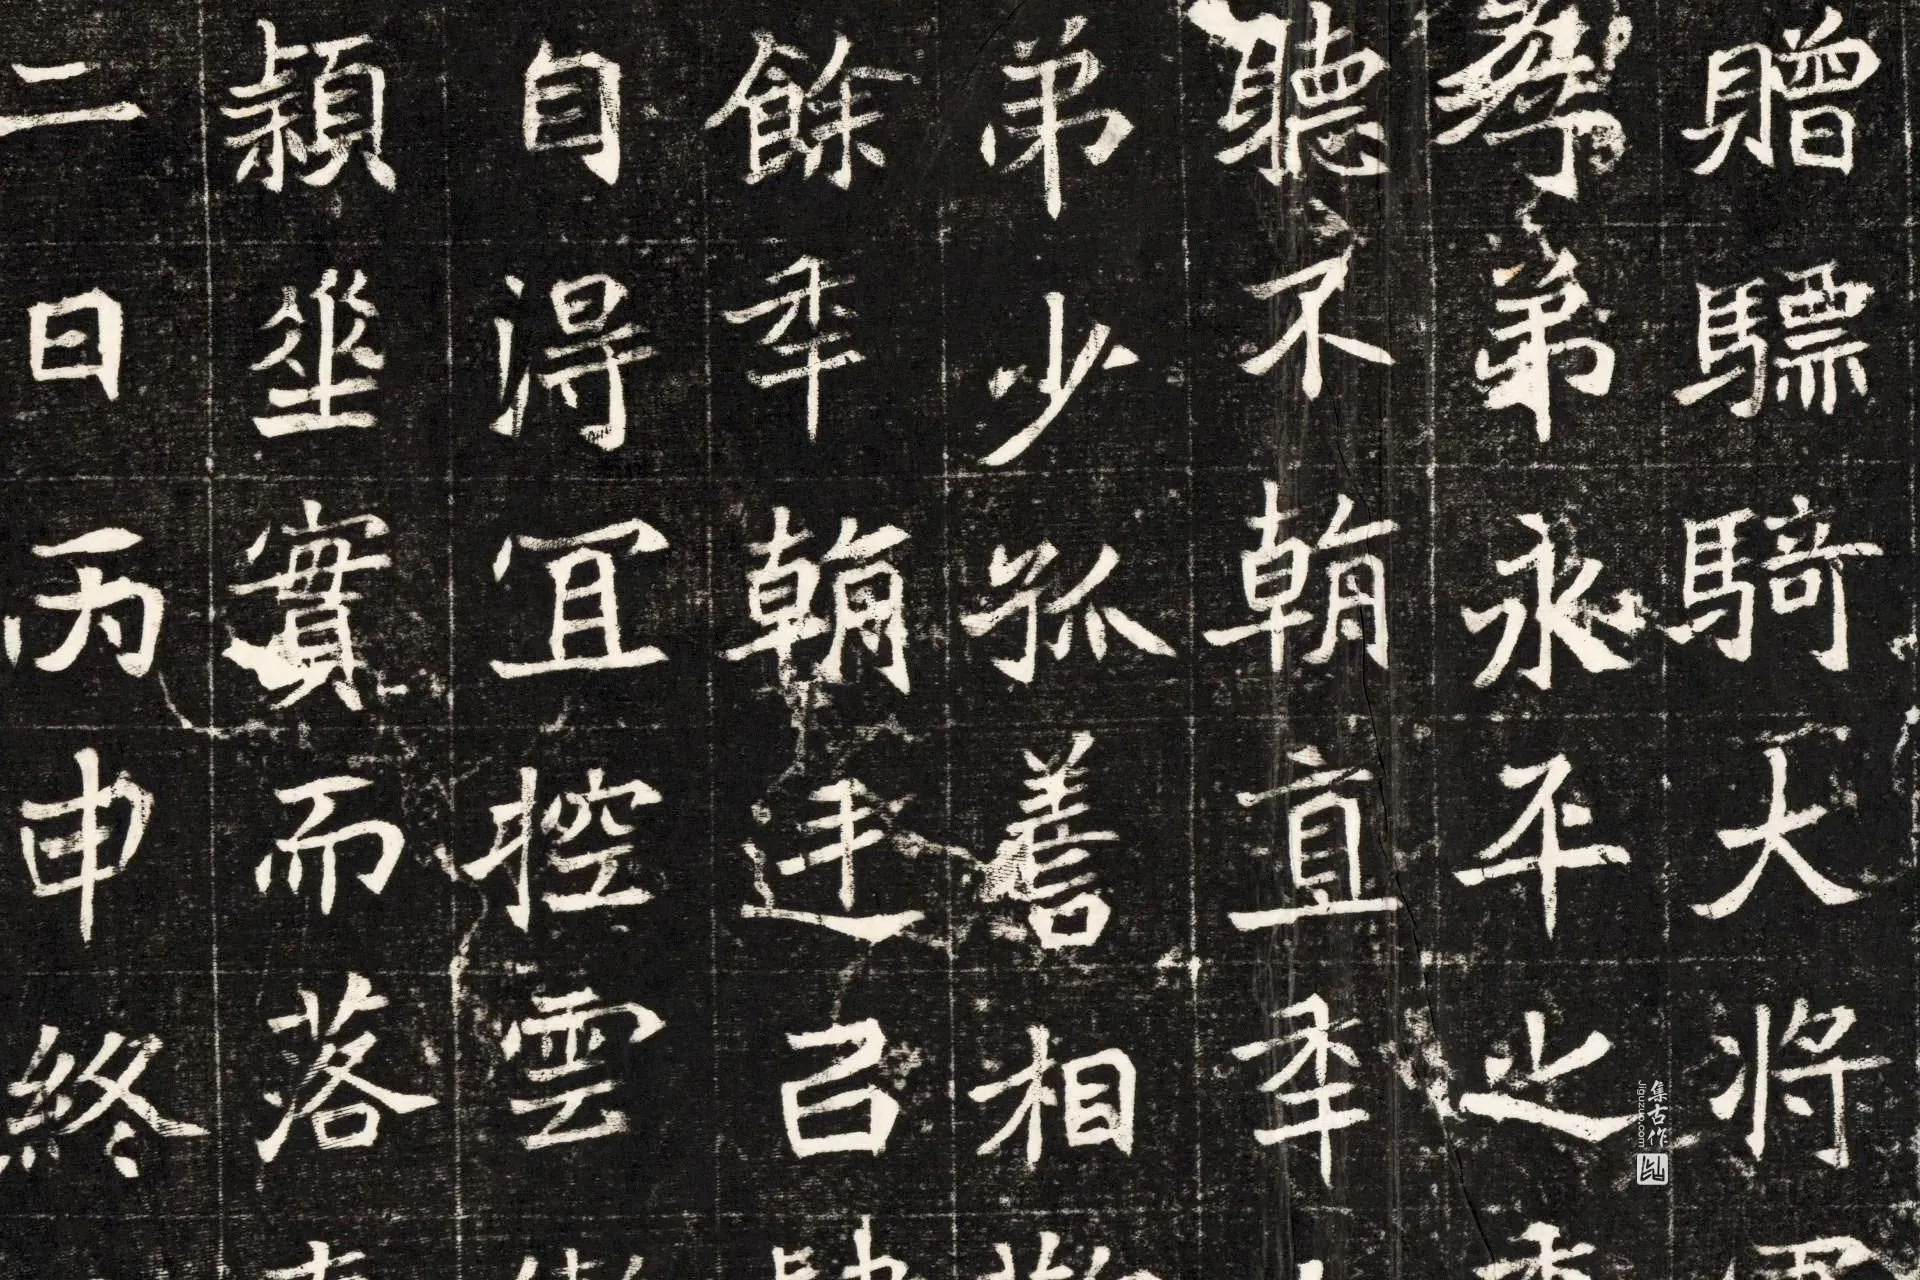 贈驃騎大將軍
弟永平之季
聽不朝直年
弟少孤善相
餘年朝廷㠯
自得冝控雲
穎坐實而落
二日丙申終
集古作
jiguzuo.com